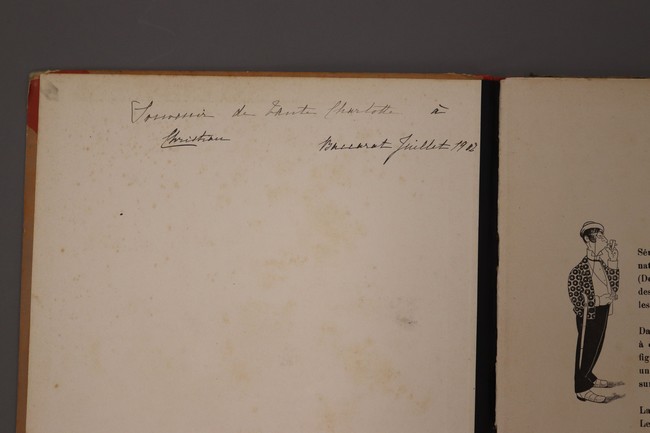 Souvenir de Tante Charlotte à
Christian
Baccarat Juillet 1912
Sér
nat
(De
des
les
Da
à
fig
un
sur
La
Le